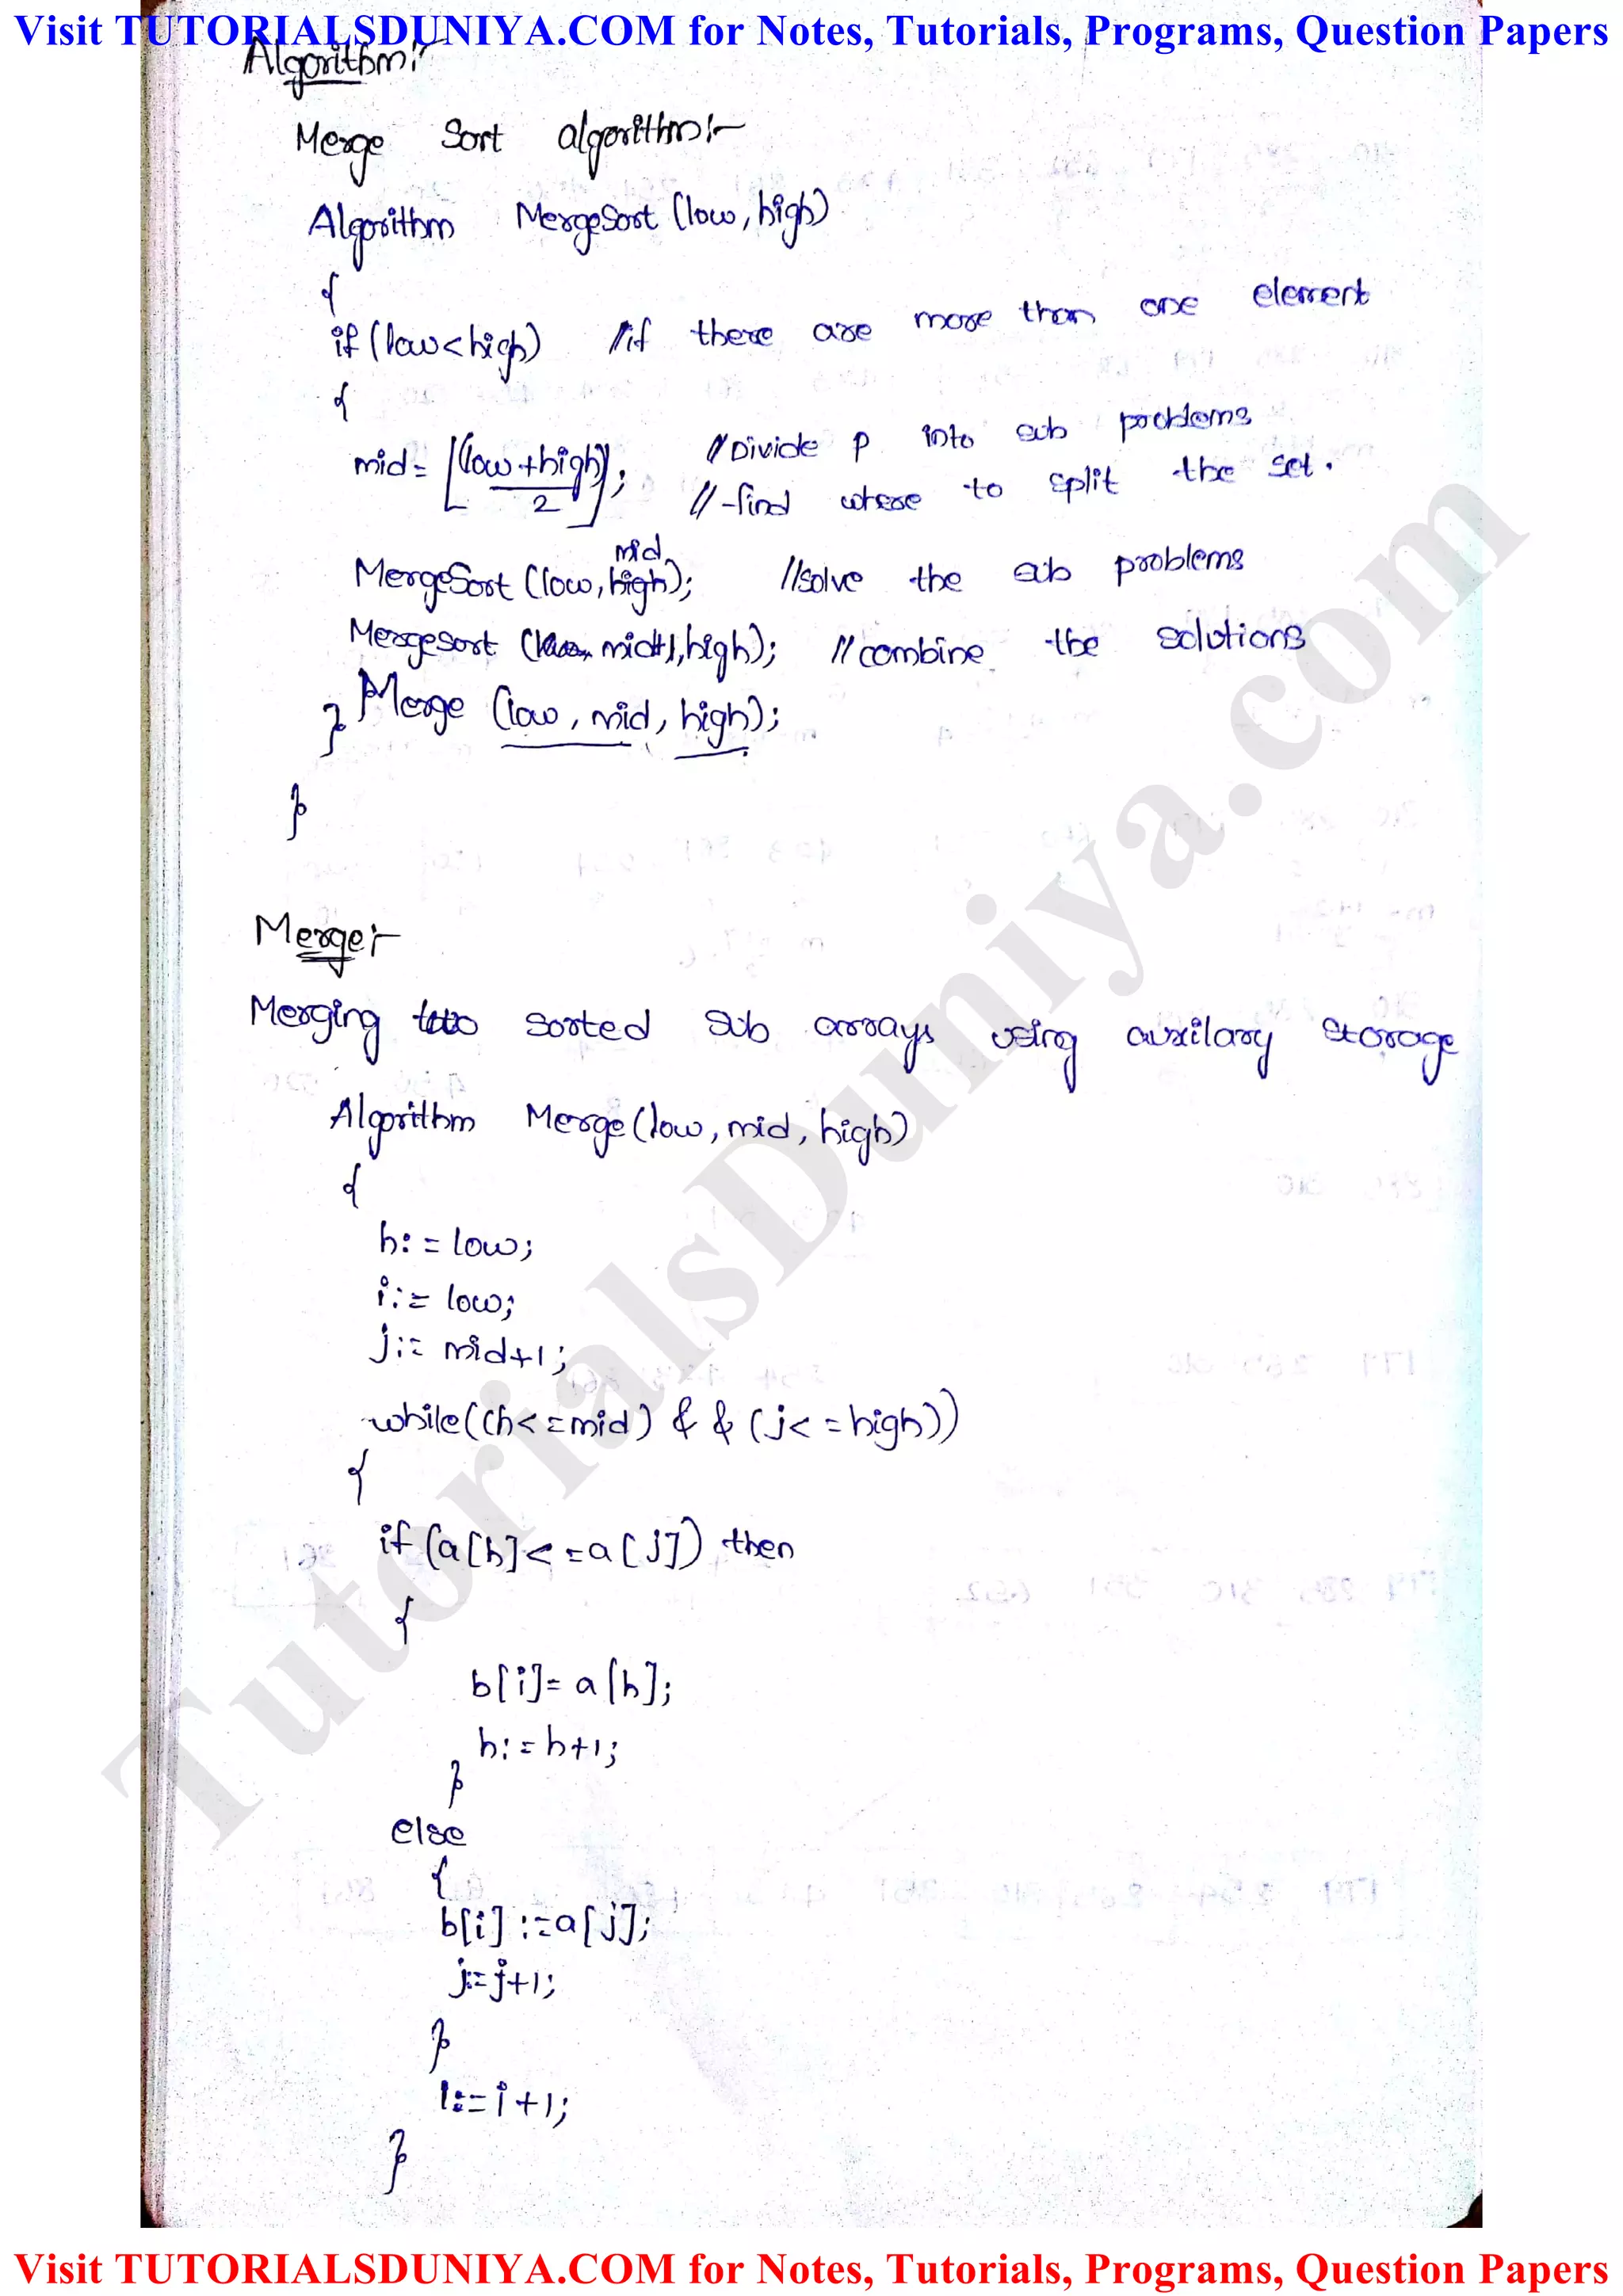 Visit TUTORIALSDUNIYA.COM for Notes, Tutorials, Programs, Question Papers
Algorithm:-
Merge Sort algorithm:-
Algorithm MergeSort (low, high)
{
if (low<high) //if there are more than one element
{
mid = [(low+high)/2]; //Divide P into sub problems
//find where to split the set.
mid
MergeSort (low, high); //solve the sub problems
MergeSort (low, mid+1, high); //combine the solutions
} Merge (low, mid, high);
}
Merge:-
Merging two sorted sub arrays using auxilary storage
Algorithm Merge (low, mid, high)
{
h:=low;
i:= low;
j:= mid+1;
while((h<=mid) && (j<=high))
{
if (a[h]<=a[j]) then
{
b[i]= a[h];
h:=h+1;
}
else
{
b[i] :=a[j];
j:=j+1;
}
i:=i+1;
}
TutorialsDuniya.com
Visit TUTORIALSDUNIYA.COM for Notes, Tutorials, Programs, Question Papers